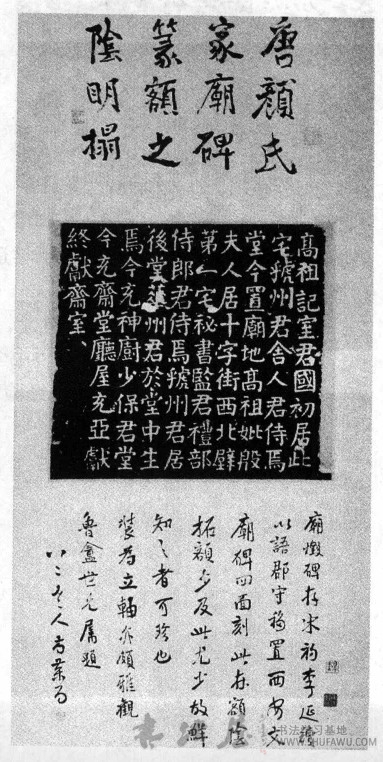 唐顏氏
家廟碑
篆額之
陰明搨
高祖記室君國初居此
宅虢州君舍人君侍焉
堂今置廟地高祖妣殷
夫人居十字街西北壁
第一宅祕書監君禮部
侍郎君侍焉虢州君居
後堂華州君於堂中生
焉今充神廚少保君堂
今充齋堂廳屋充亞獻
終獻齋室
廟燬碑存宋初李延襲
以語郡守移置西安文
廟碑四面刻此在額陰
拓額少及此尤少故鮮
知之者可珍也
裝為立軸亦頗雅觀
魯盦世兄屬題
八二老人
书法学习基地
WWW.SHUFAWU.COM